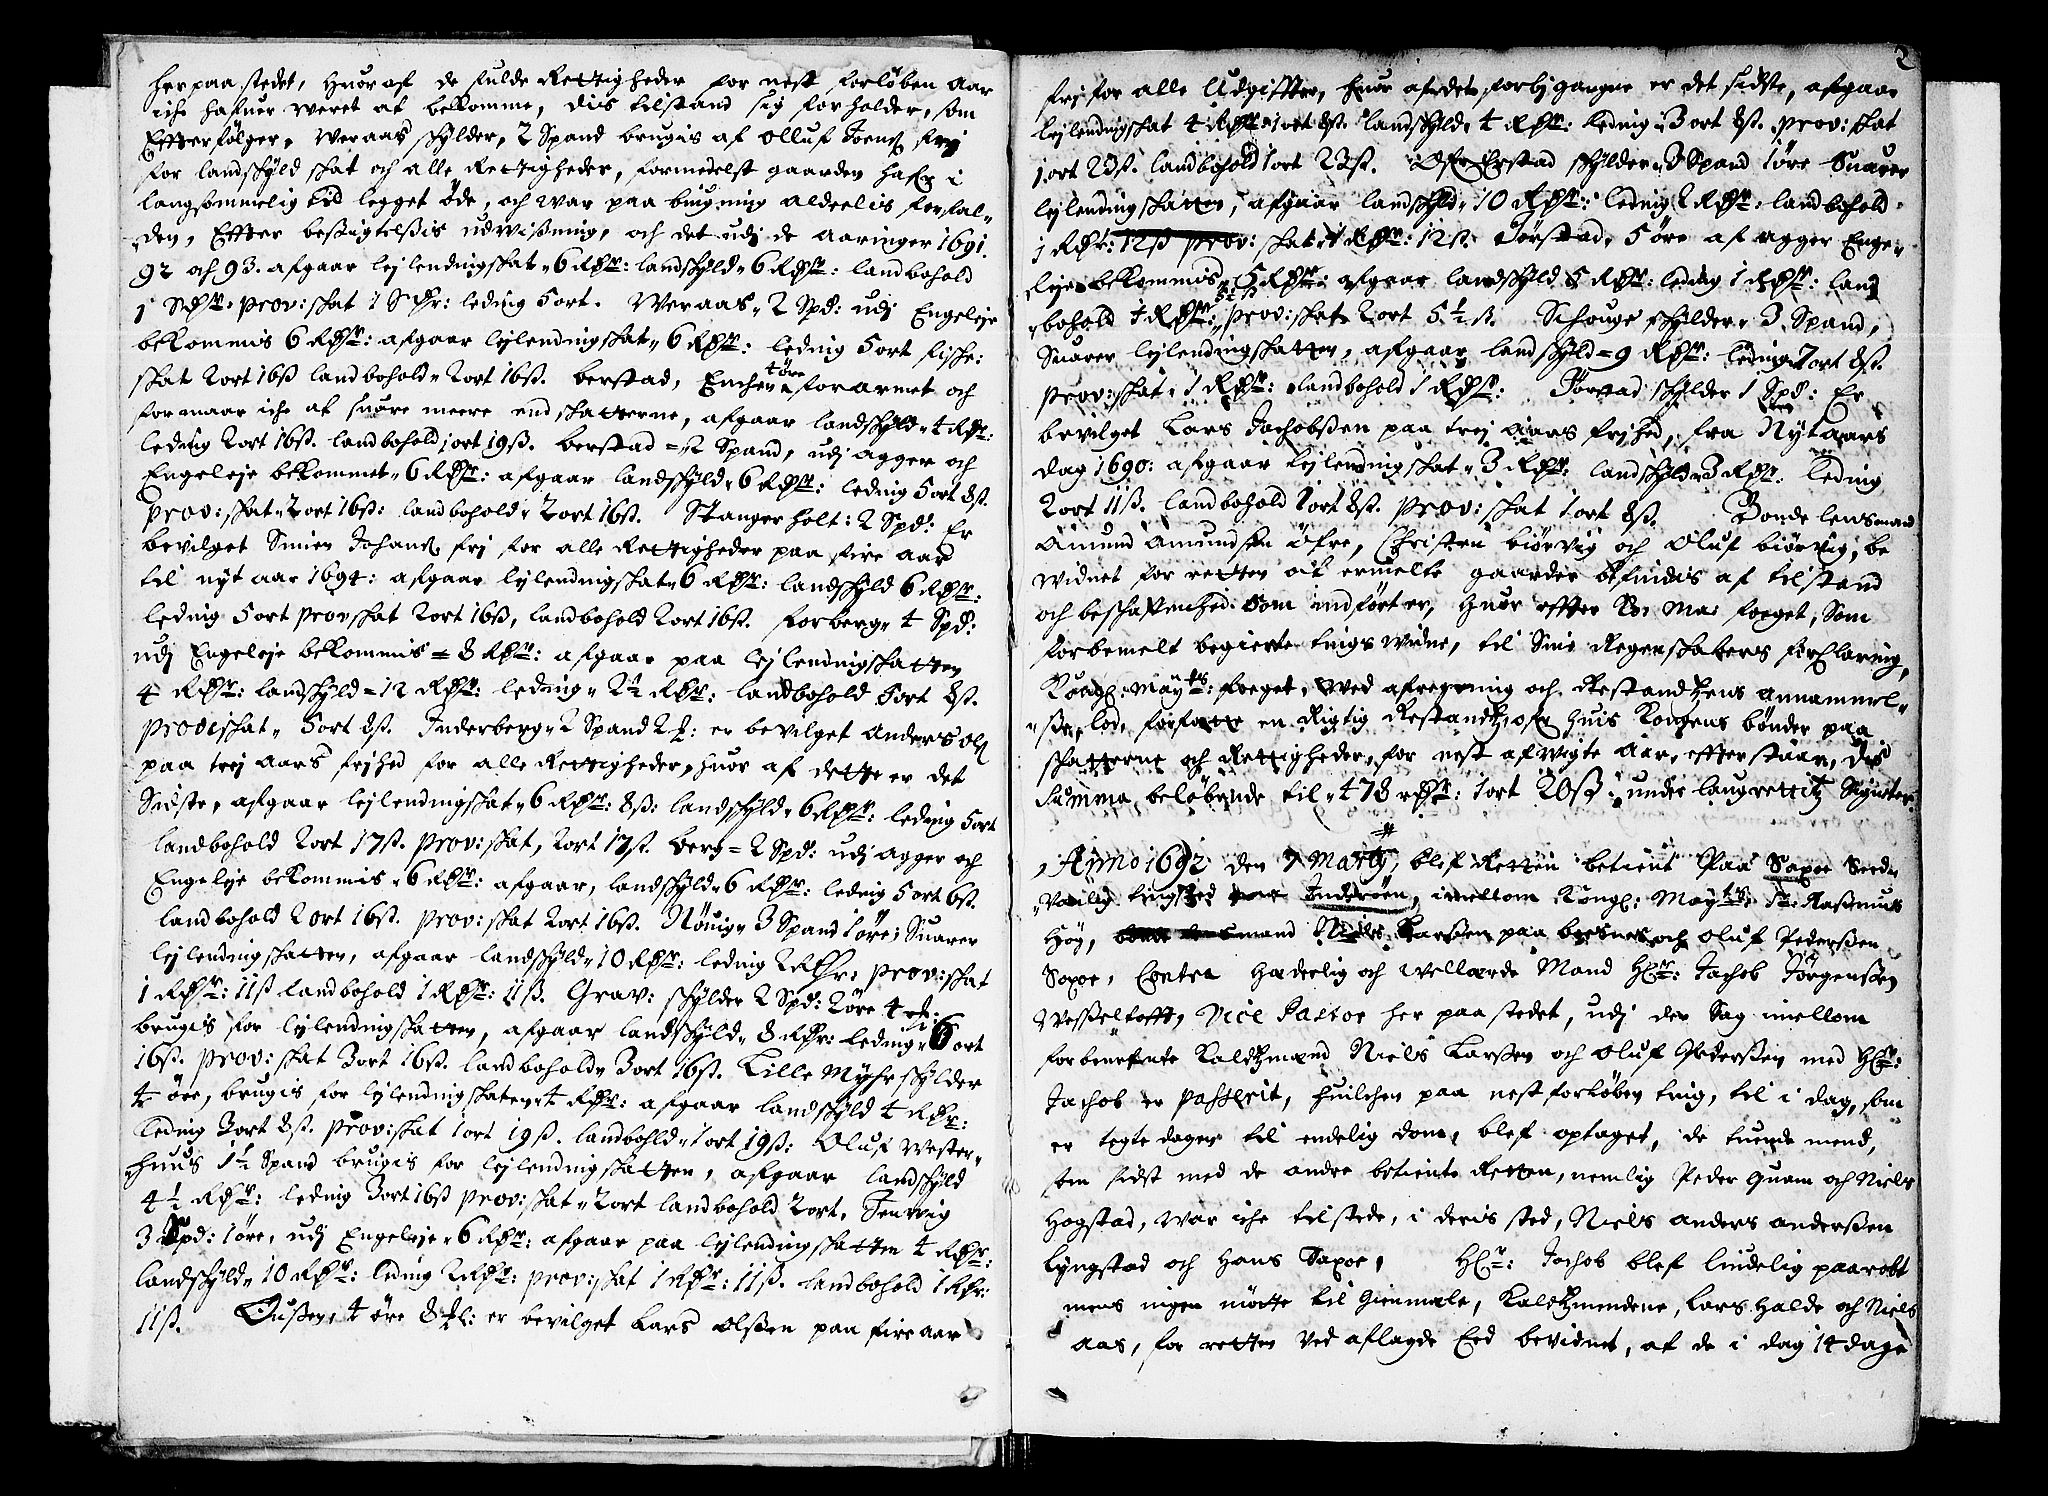 her paa stedet, Huor af de fulde Rettigheder for nest forløben aar
iche hafuer weret at bekomme, diis tilstand sig forholder, som
Effterfølger, Weraas schylder, 2 Spand brugis af olluf Joens: frij
for landschyld schat och alle Rettigheder, formedelst gaarden hafr i
langsommelig tid legget øde, och war paa bijgning aldeelis forfal„
„den, Effter besigtelsis udwissning, och det udj de aaringer 1691.
92 och 93. afgaar leylendingschat„ 6 Rdr: landschyld„ 6 Rdr: landbohold
1 Rdr: prov: schat 1 Rdr: leding 5 ort. Weraas„ 2 Spd: udj Engeleje
bekommis 6 Rdr: afgaar leylendingschat„ 6 Rdr: leding 5 ort
schat 2 ort 16 ß landbohold„ 2 ort 16 ß. berstad, Enchen 1 øre forarmet och
formaar iche at suare meere end schatterne, afgaar landschyld„ 4 Rdr:
leding 2 ort 16 ß. landbohold 1 ort 19 ß. berstad = 2 Spand, udj agger och
Engeleje bekommet„ 6 Rdr: afgaar landschyld„ 6 Rdr: leding 5 ort 8 ß.
prov: schat„ 2 ort 16 ß: landbohold„ 2 ort 16 ß. Stangerholt: 2 Spd: Er
bevilget Simen Johans: frj for alle Rettigheder paa fire aar
til nyt aar 1694: afgaar leylendingschat„ 6 Rdr: landschyld 6 Rdr:
leding 5 ort provschat 2 ort 16 ß, landbohold 2 ort 16 ß. forberg„ 4 Spd:
udj Engeleje bekommis = 8 Rdr: afgaar paa leylendingschatten
4 Rdr: landschyld = 12 Rdr: leding„ 2½ Rdr: landbohold 5 ort 8 ß.
provischat„ 5 ort 8 ß. Inderberg„ 2 Spand 2 : er bevilget Anders Ols
paa trej aars frjhed for alle Rettigheder, huor af dette er det
Sidste, afgaar leylendingschat„ 6 Rdr: 8 ß: landschyld„ 6 Rdr: leding 5 ort
landbohold 2 ort 17 ß. prov: schat, 2 ort 17 ß. berg = 2 Spd: udj agger och
Engeleje bekommis„ 6 Rdr: afgaar, landschyld„ 6 Rdr: leding 5 ort 6 ß.
landbohold 2 ort 16 ß. prov: schat 2 ort 16 ß. Nøuig„ 3 Spand 1 øre; Suarer
leylendingschatten, afgaar landschyld„ 10 Rdr: leding 2 Rdr: prov: schat
1 Rdr: 11 ß landbohold 1 Rdr: 11 ß. Grav: schylder 2 Spd: 2 øre 4
brugis for leylendingschatten, afgaar landschyld„ 8 Rdr: leding„ 6 ort
16 ß. prov: schat 3 ort 16 ß. landbohold„ 3 ort 16 ß. Lille Myhr schylder
4 øre, brugis for leylendingschaten„ 4 Rdr: afgaar landschyld 4 Rdr:
leding 3 ort 8 ß. prov: schat 1 ort 19 ß. landbohld„ 1 ort 19 ß: Oluf Wester„
„huus 1½ Spand brugis for leylendingschatten, afgaar landschyld
4½ Rdr: leding 3 ort 16 ß prov: schat„ 2 ort landbohold 2 ort.
3 Spd: 1 øre, udj Engeleje„ 6 Rdr: afgaar paa leylendingschatten 4 Rdr:
landschyld„ 10 Rdr: leding 2 Rdr: prov: schat 1 Rdr: 11 ß. landbohold 1 Rdr:
11 ß. 4 øre 8 : er bevilget Lars Olssen paa fire aar
2
frj for alle Udgiffter, huor af det forbjgangne er det sidste, afgaar
leylendingschat 4 Rdr 1 ort 8 ß. landschyld„ 4 Rdr: leding„ 3 ort 8 ß. prov: schat
1 ort 23 ß. landbohold 1 ort 23 ß. schylder„ 3 Spand 1 øre Suarer
leylendingschatten, afgaar landschyld„ 10 Rdr: leding 2 Rdr: landbohold
1 Rdr: 12 ß prov: schat„ 1 Rdr: 12 ß. Dørstad, 5 øre af agger Enge„
„leje bekommis„ 5 Rdr: afgaar landschyld 5 Rdr: leding 1 Rdr: land
„bohold Rdr: 5½ ß prov: schat„ 2 ort 5½ ß. Schouge schylder„ 3 Spand,
Suarer leylendingschatten, afgaar landschyld = 9 Rdr: leding 7 ort 8 ß.
prov: schat„ 1 Rdr: landbohold 1 Rdr: Tørstad schylder 1 Spd: Er
bevilget Lars Jachobssen paa trej aars frjhed, fra Nytaars
dag 1690: afgaar leylendingschat„ 3 Rdr: landschyld„ 3 Rdr: leding
2 ort 11 ß. landbohold 1 ort 8 ß. prov: schat 1 ort 8 ß. Bonde lensmand
Amund Amundsen Øfre, Christen biørvig och Oluf biørvig, be
widnet for retten at ermelte gaarder befindis af tilstand
och beschaffenhed som indført er, huor effter Ko: Ma: foeget, Som
forbemelt begierte tingswidne, til Sine Regenschabers forklaring,
Kongl: Mayts: foeget, wed afregning och Restandtzens annammel„
„sse, lod, forfatte en Rigtig Restandtz, ofr huis Kongens bønder paa
schatterne och Rettigheder, for nest afwigte aar, effterstaar, dis
Summa beløbende til„ 478 Rdr: 1 ort 20 ß: under laugrettitz Signter.
Anno 1692 den 7 Martij, blef Retten betient Paa Saxoe Sæd„
„vonlig tingsted Inderøen, imellom Kongl: Mayts: Sr: Rasmus
Høy, mand Niels Larssen paa och Oluf Pederssen
Saxoe, Contra Hæderlig och wellærde Mand Hr: Jachob Jørgenssen
Wesseltofft, Vice Pastor her paa stedet, udj den Sag imellom
forbenefnte Kaldtzmænd Niels Larssen och Oluf Pederssen med Hr:
Jachob er Passerit, huilchen paa nest forløben ting, til i dag, som
er tegtedagen til endelig dom, blef optaget, de tuende mend,
som sidst med de andre betiente Retten, nemlig Peder Quam och Niels
Hogstad, war iche tilstede, i deris sted, Niels Anders Anderssen
Lyngstad och Hans Saxoe, Hr: Jachob blef lindelig paaråbt
mens ingen mötte til Gienmæle, Kaldtzmendene, Lars Halde och Niels
Aas, for retten ved aflagde Eed bevidnet, at de i dag 14 dage